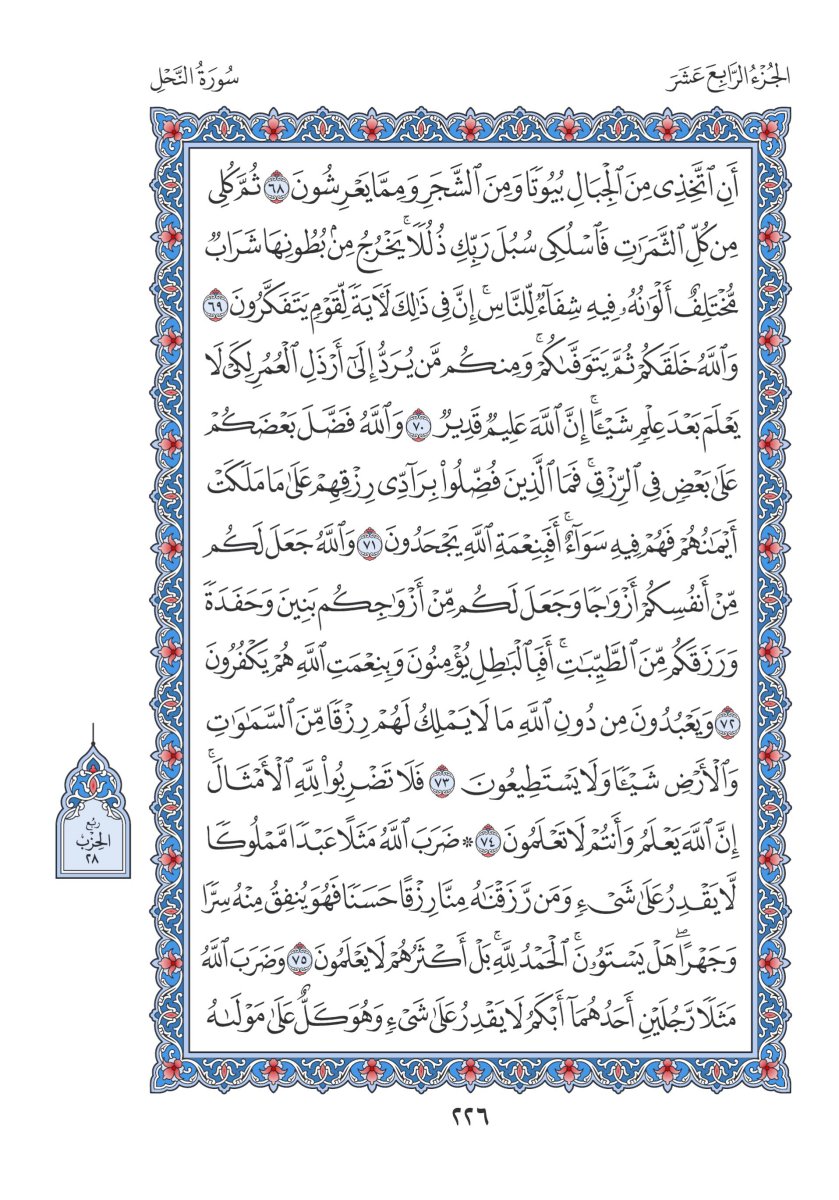 الجُزْءُ الرَّابِعَ عَشَرَ
سُورَةُ النَّحْلِ
أَنِ ٱتَّخِذِى مِنَ ٱلْجِبَالِ بُيُوتًا وَمِنَ ٱلشَّجَرِ وَمِمَّا يَعْرِشُونَ ٦٨ ثُمَّ كُلِى
مِن كُلِّ ٱلثَّمَرَٰتِ فَٱسْلُكِى سُبُلَ رَبِّكِ ذُلُلًا ۚ يَخْرُجُ مِنۢ بُطُونِهَا شَرَابٌ
مُّخْتَلِفٌ أَلْوَٰنُهُۥ فِيهِ شِفَآءٌ لِّلنَّاسِ ۚ إِنَّ فِى ذَٰلِكَ لَءَايَةً لِّقَوْمٍ يَتَفَكَّرُونَ ٦٩
وَٱللَّهُ خَلَقَكُمْ ثُمَّ يَتَوَفَّىٰكُمْ ۚ وَمِنكُم مَّن يُرَدُّ إِلَىٰٓ أَرْذَلِ ٱلْعُمُرِ لِكَىْ لَا
يَعْلَمَ بَعْدَ عِلْمٍ شَيْـًٔا ۚ إِنَّ ٱللَّهَ عَلِيمٌ قَدِيرٌ ٧٠ وَٱللَّهُ فَضَّلَ بَعْضَكُمْ
عَلَىٰ بَعْضٍ فِى ٱلرِّزْقِ ۚ فَمَا ٱلَّذِينَ فُضِّلُوا۟ بِرَآدِّى رِزْقِهِمْ عَلَىٰ مَا مَلَكَتْ
أَيْمَٰنُهُمْ فَهُمْ فِيهِ سَوَآءٌ ۚ أَفَبِنِعْمَةِ ٱللَّهِ يَجْحَدُونَ ٧١ وَٱللَّهُ جَعَلَ لَكُم
مِّنْ أَنفُسِكُمْ أَزْوَٰجًا وَجَعَلَ لَكُم مِّنْ أَزْوَٰجِكُم بَنِينَ وَحَفَدَةً
وَرَزَقَكُم مِّنَ ٱلطَّيِّبَٰتِ ۚ أَفَبِٱلْبَٰطِلِ يُؤْمِنُونَ وَبِنِعْمَتِ ٱللَّهِ هُمْ يَكْفُرُونَ
٧٢ وَيَعْبُدُونَ مِن دُونِ ٱللَّهِ مَا لَا يَمْلِكُ لَهُمْ رِزْقًا مِّنَ ٱلسَّمَٰوَٰتِ
وَٱلْأَرْضِ شَيْـًٔا وَلَا يَسْتَطِيعُونَ ٧٣ فَلَا تَضْرِبُوا۟ لِلَّهِ ٱلْأَمْثَالَ ۚ
إِنَّ ٱللَّهَ يَعْلَمُ وَأَنتُمْ لَا تَعْلَمُونَ ٧٤ * ضَرَبَ ٱللَّهُ مَثَلًا عَبْدًا مَّمْلُوكًا
لَّا يَقْدِرُ عَلَىٰ شَىْءٍ وَمَن رَّزَقْنَٰهُ مِنَّا رِزْقًا حَسَنًا فَهُوَ يُنفِقُ مِنْهُ سِرًّا
وَجَهْرًا ۖ هَلْ يَسْتَوُۥنَ ۚ ٱلْحَمْدُ لِلَّهِ ۚ بَلْ أَكْثَرُهُمْ لَا يَعْلَمُونَ ٧٥ وَضَرَبَ ٱللَّهُ
مَثَلًا رَّجُلَيْنِ أَحَدُهُمَآ أَبْكَمُ لَا يَقْدِرُ عَلَىٰ شَىْءٍ وَهُوَ كَلٌّ عَلَىٰ مَوْلَىٰهُ
رُبُع
الحِزْبُ
٢٨
٢٢٦